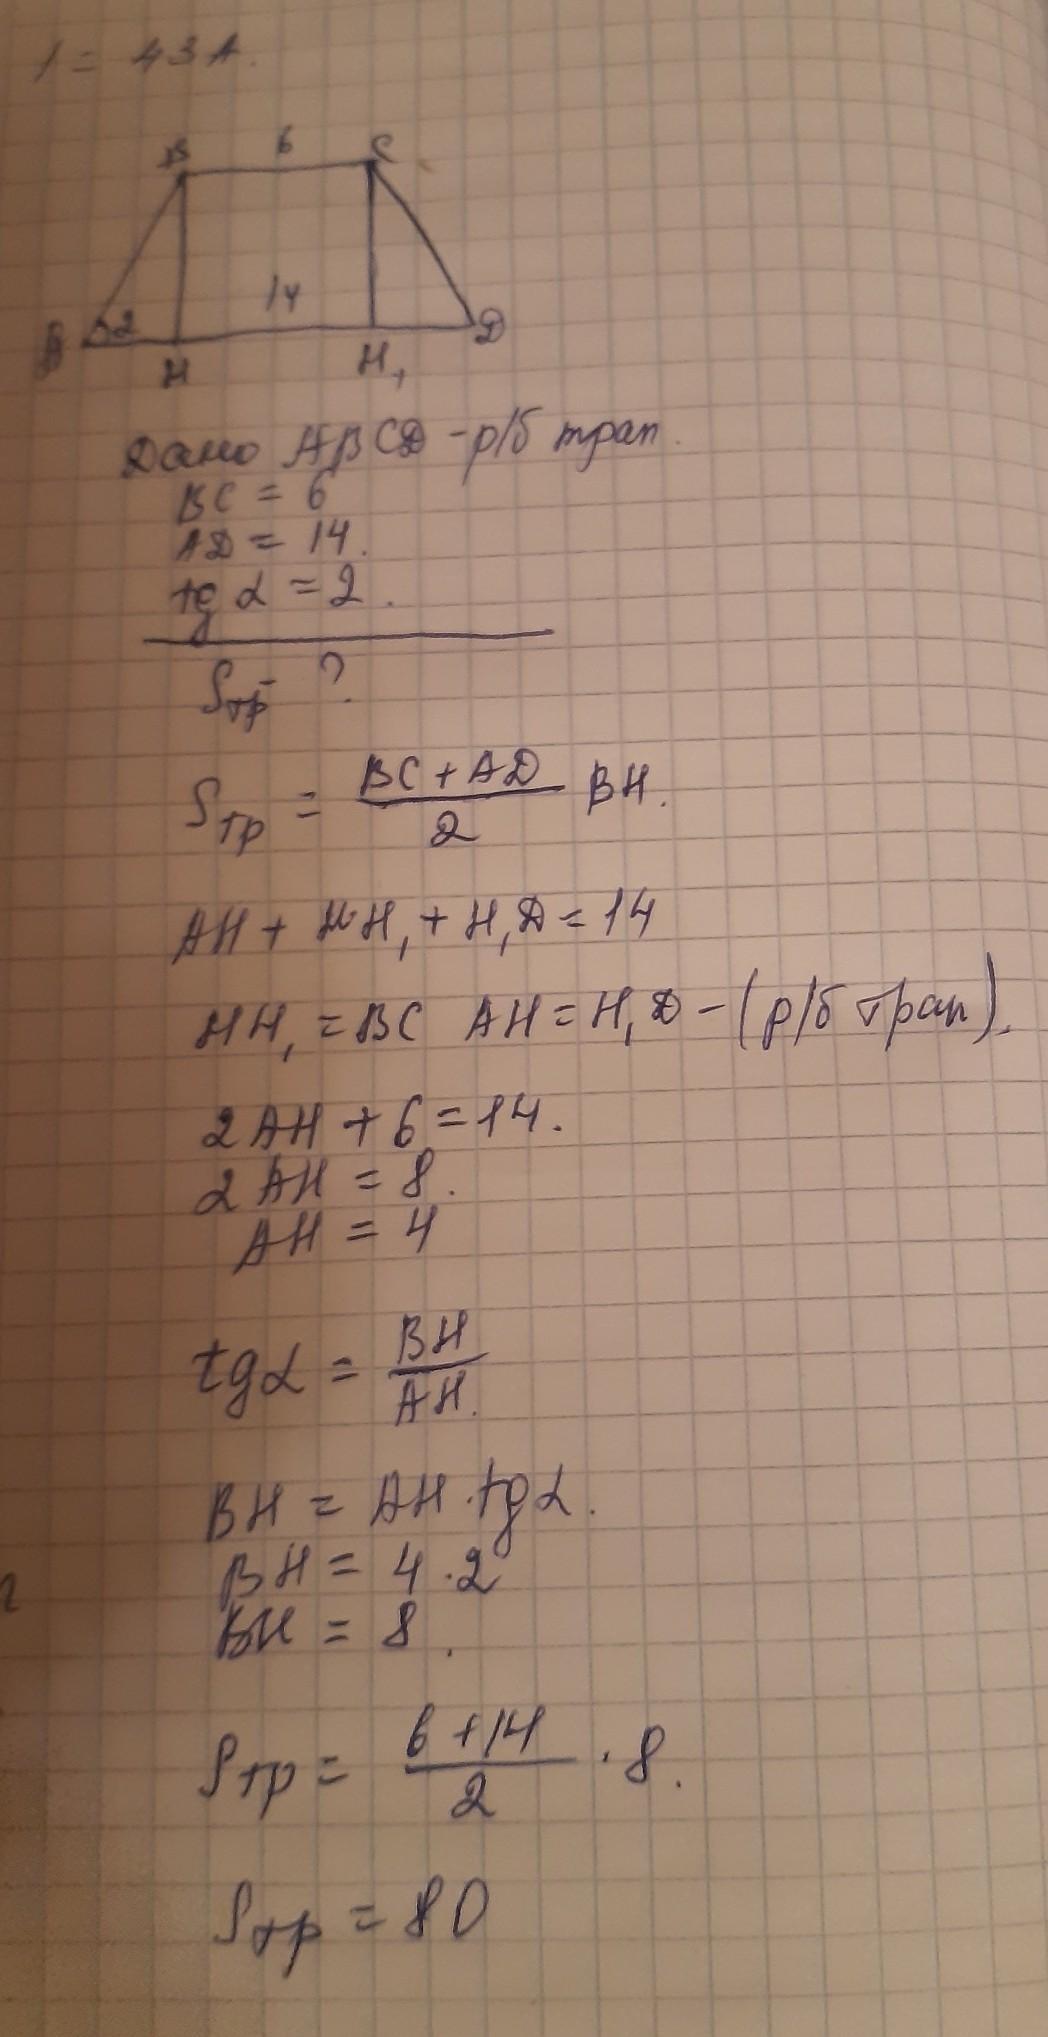 I = 43А.
B 6 C
14
2 D
H H₁
Дано ABCD - р/б трап.
BC = 6
AD = 14.
tg α = 2.
Sтр - ?
Sтр = (BC + AD)/2 BH.
AH + HH₁ + H₁D = 14
HH₁ = BC AH = H₁D - (р/б трап).
2AH + 6 = 14.
2AH = 8.
AH = 4
tg α = BH/AH.
BH = AH · tg α.
BH = 4 · 2
BH = 8.
Sтр = (6 + 14)/2 · 8.
Sтр = 80